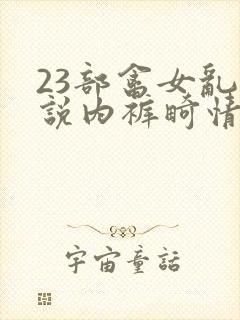 23部畜女乱
說内裤畸情
宇宙童話